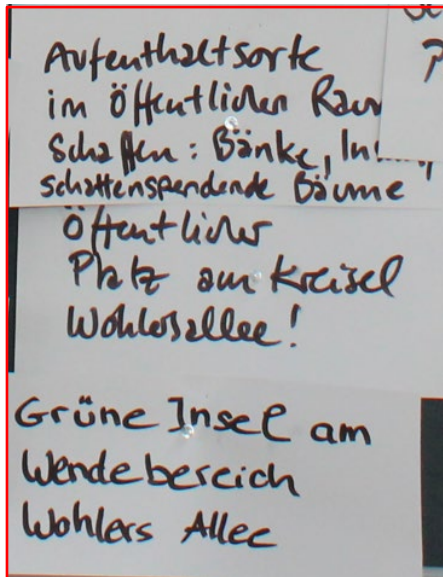 Aufenthaltsorte
im Öffentlichen Raum
Schaffen: Bänke,
schattenspendende Bäume
Öffentlicher
Platz am Kreisel
Wohlersallee!
Grüne Insel am
Wendebereich
Wohlers Allee